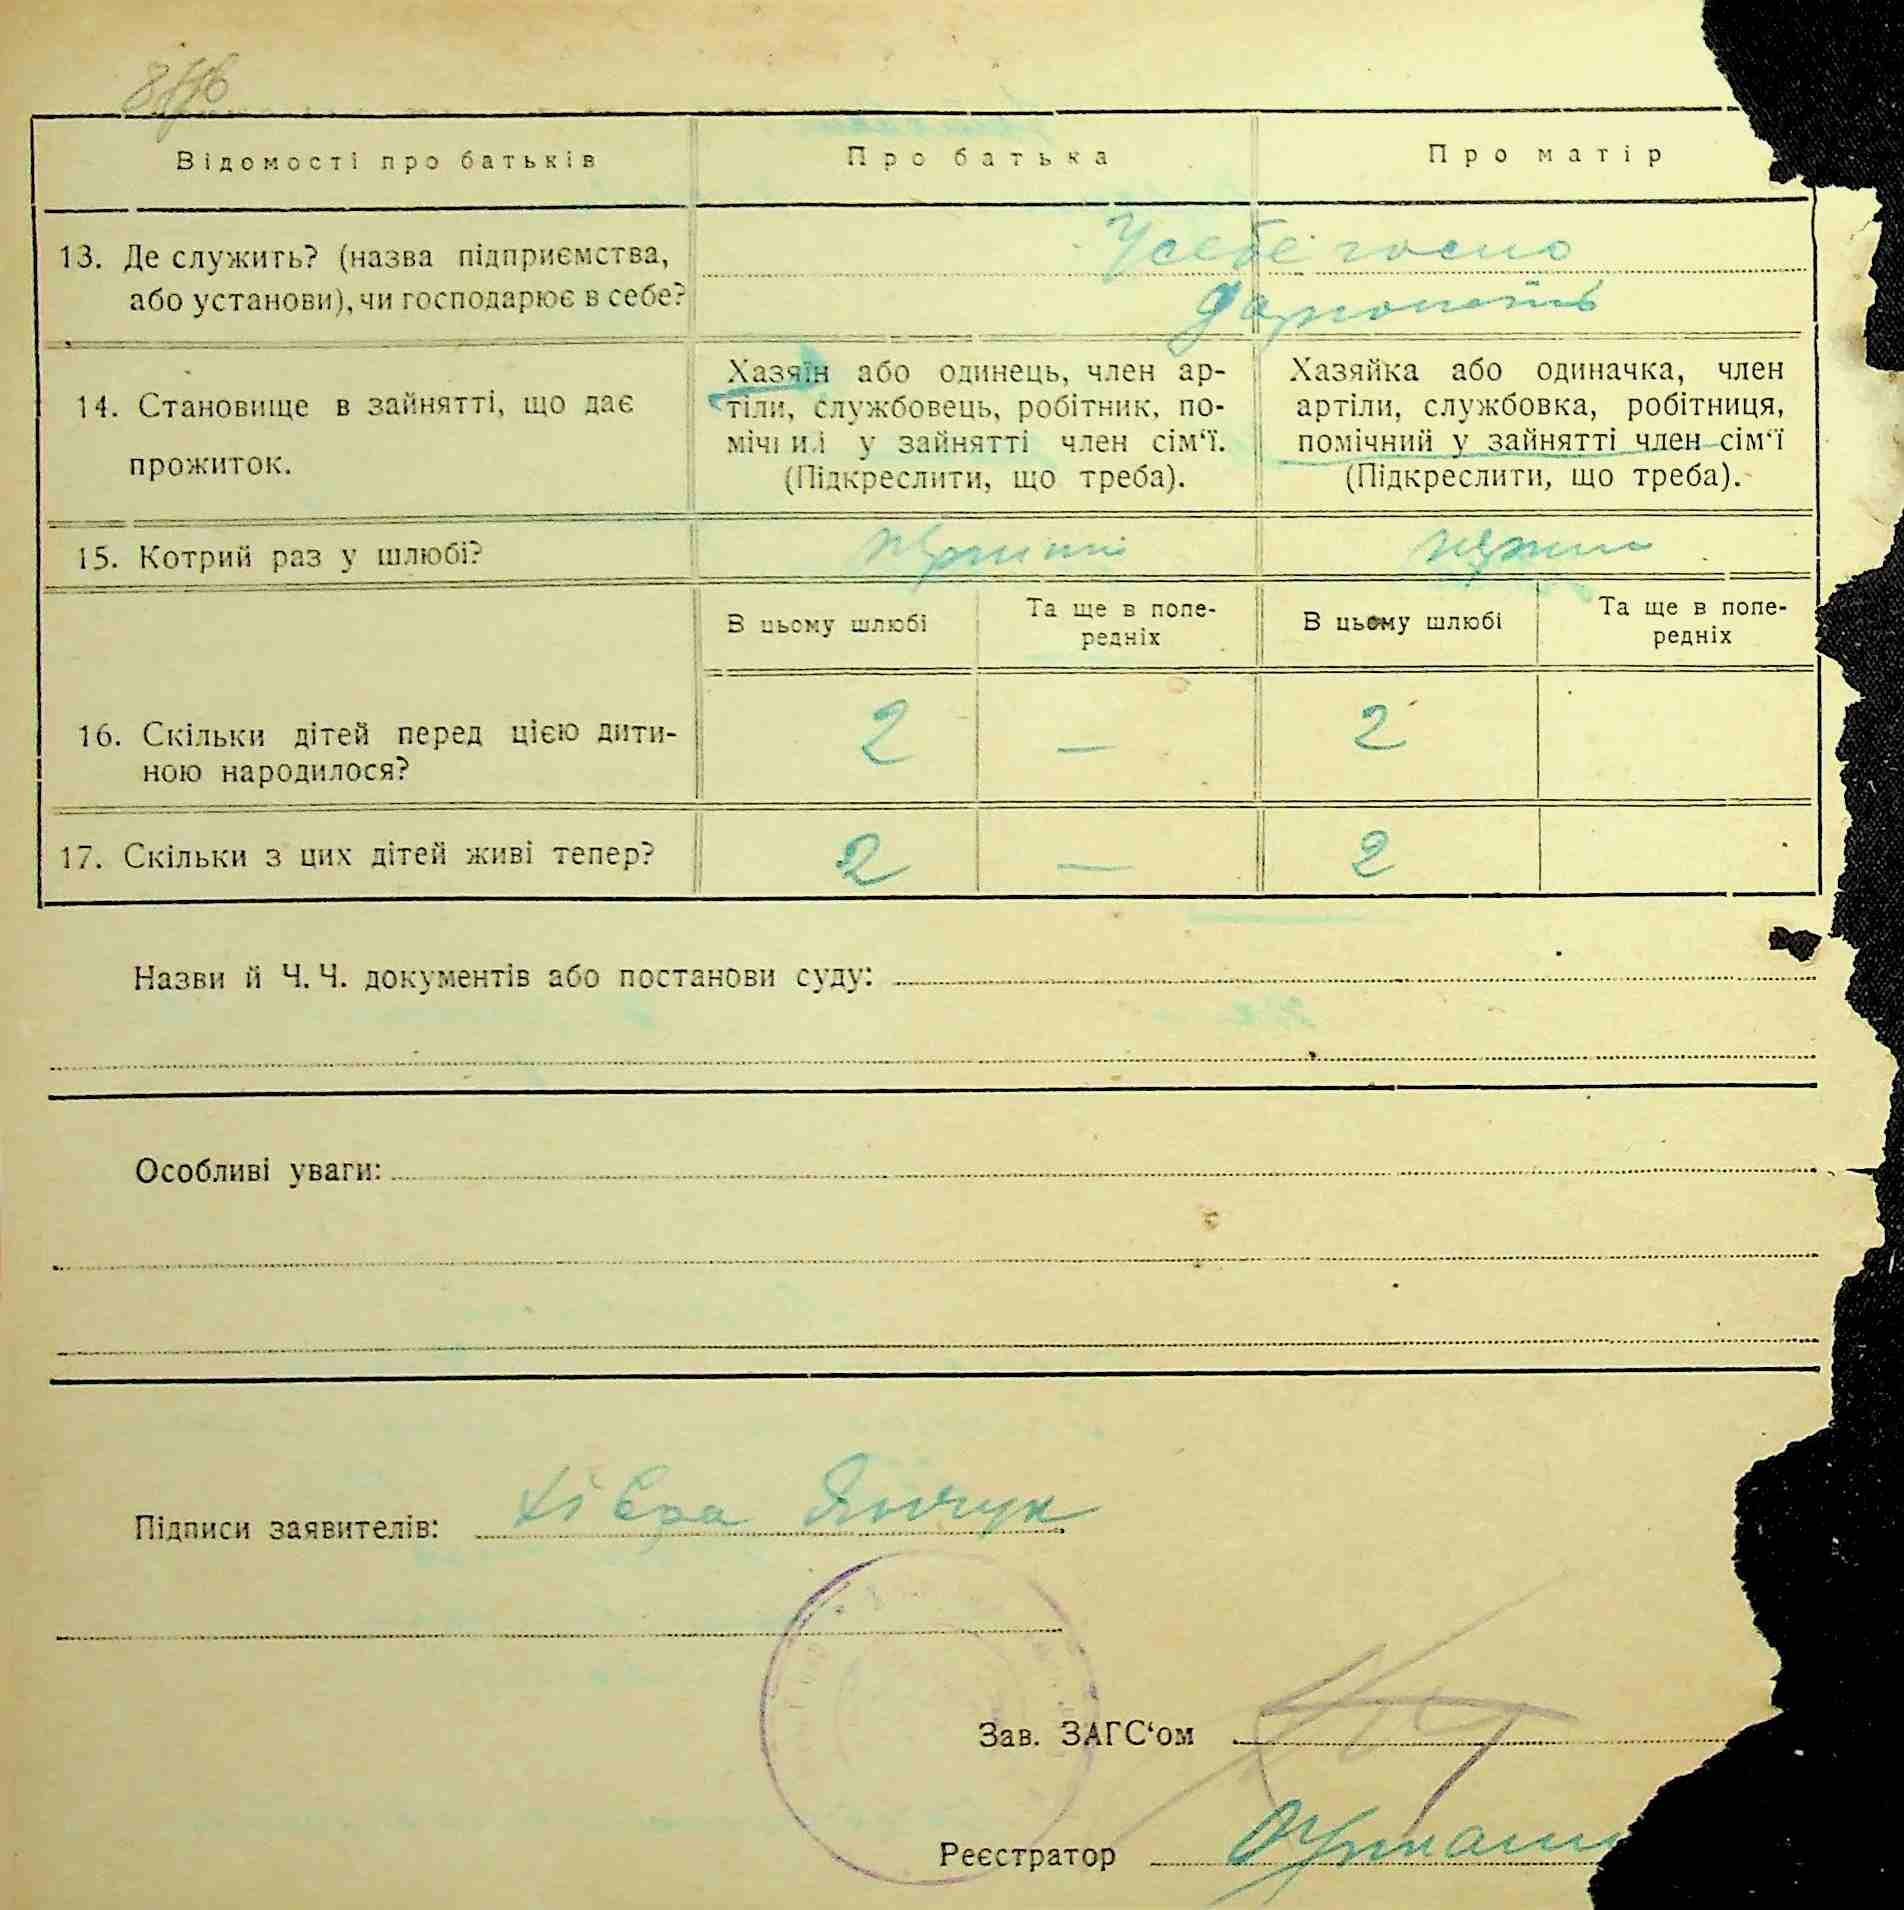 Відомості про батьків
Про батька
Про матір
13. Де служить? (назва підприємства,
або установи), чи господарює в себе?
У себе госпо
дарюють
14. Становище в зайнятті, що дає
прожиток.
Хазяїн або одинець, член ар-
тіли, службовець, робітник, по-
мічний у зайнятті член сім‘ї.
(Підкреслити, що треба).
Хазяйка або одиначка, член
артіли, службовка, робітниця,
помічний у зайнятті член сім‘ї
(Підкреслити, що треба).
15. Котрий раз у шлюбі?
В цьому шлюбі
Та ще в попе-
редніх
В цьому шлюбі
Та ще в попе-
редніх
16. Скільки дітей перед цією дити-
ною народилося?
2 — 2
17. Скільки з цих дітей живі тепер?
2 — 2
Назви й Ч. Ч. документів або постанови суду:
Особливі уваги:
Підписи заявителів:
Зав. ЗАГС‘ом
Реєстратор